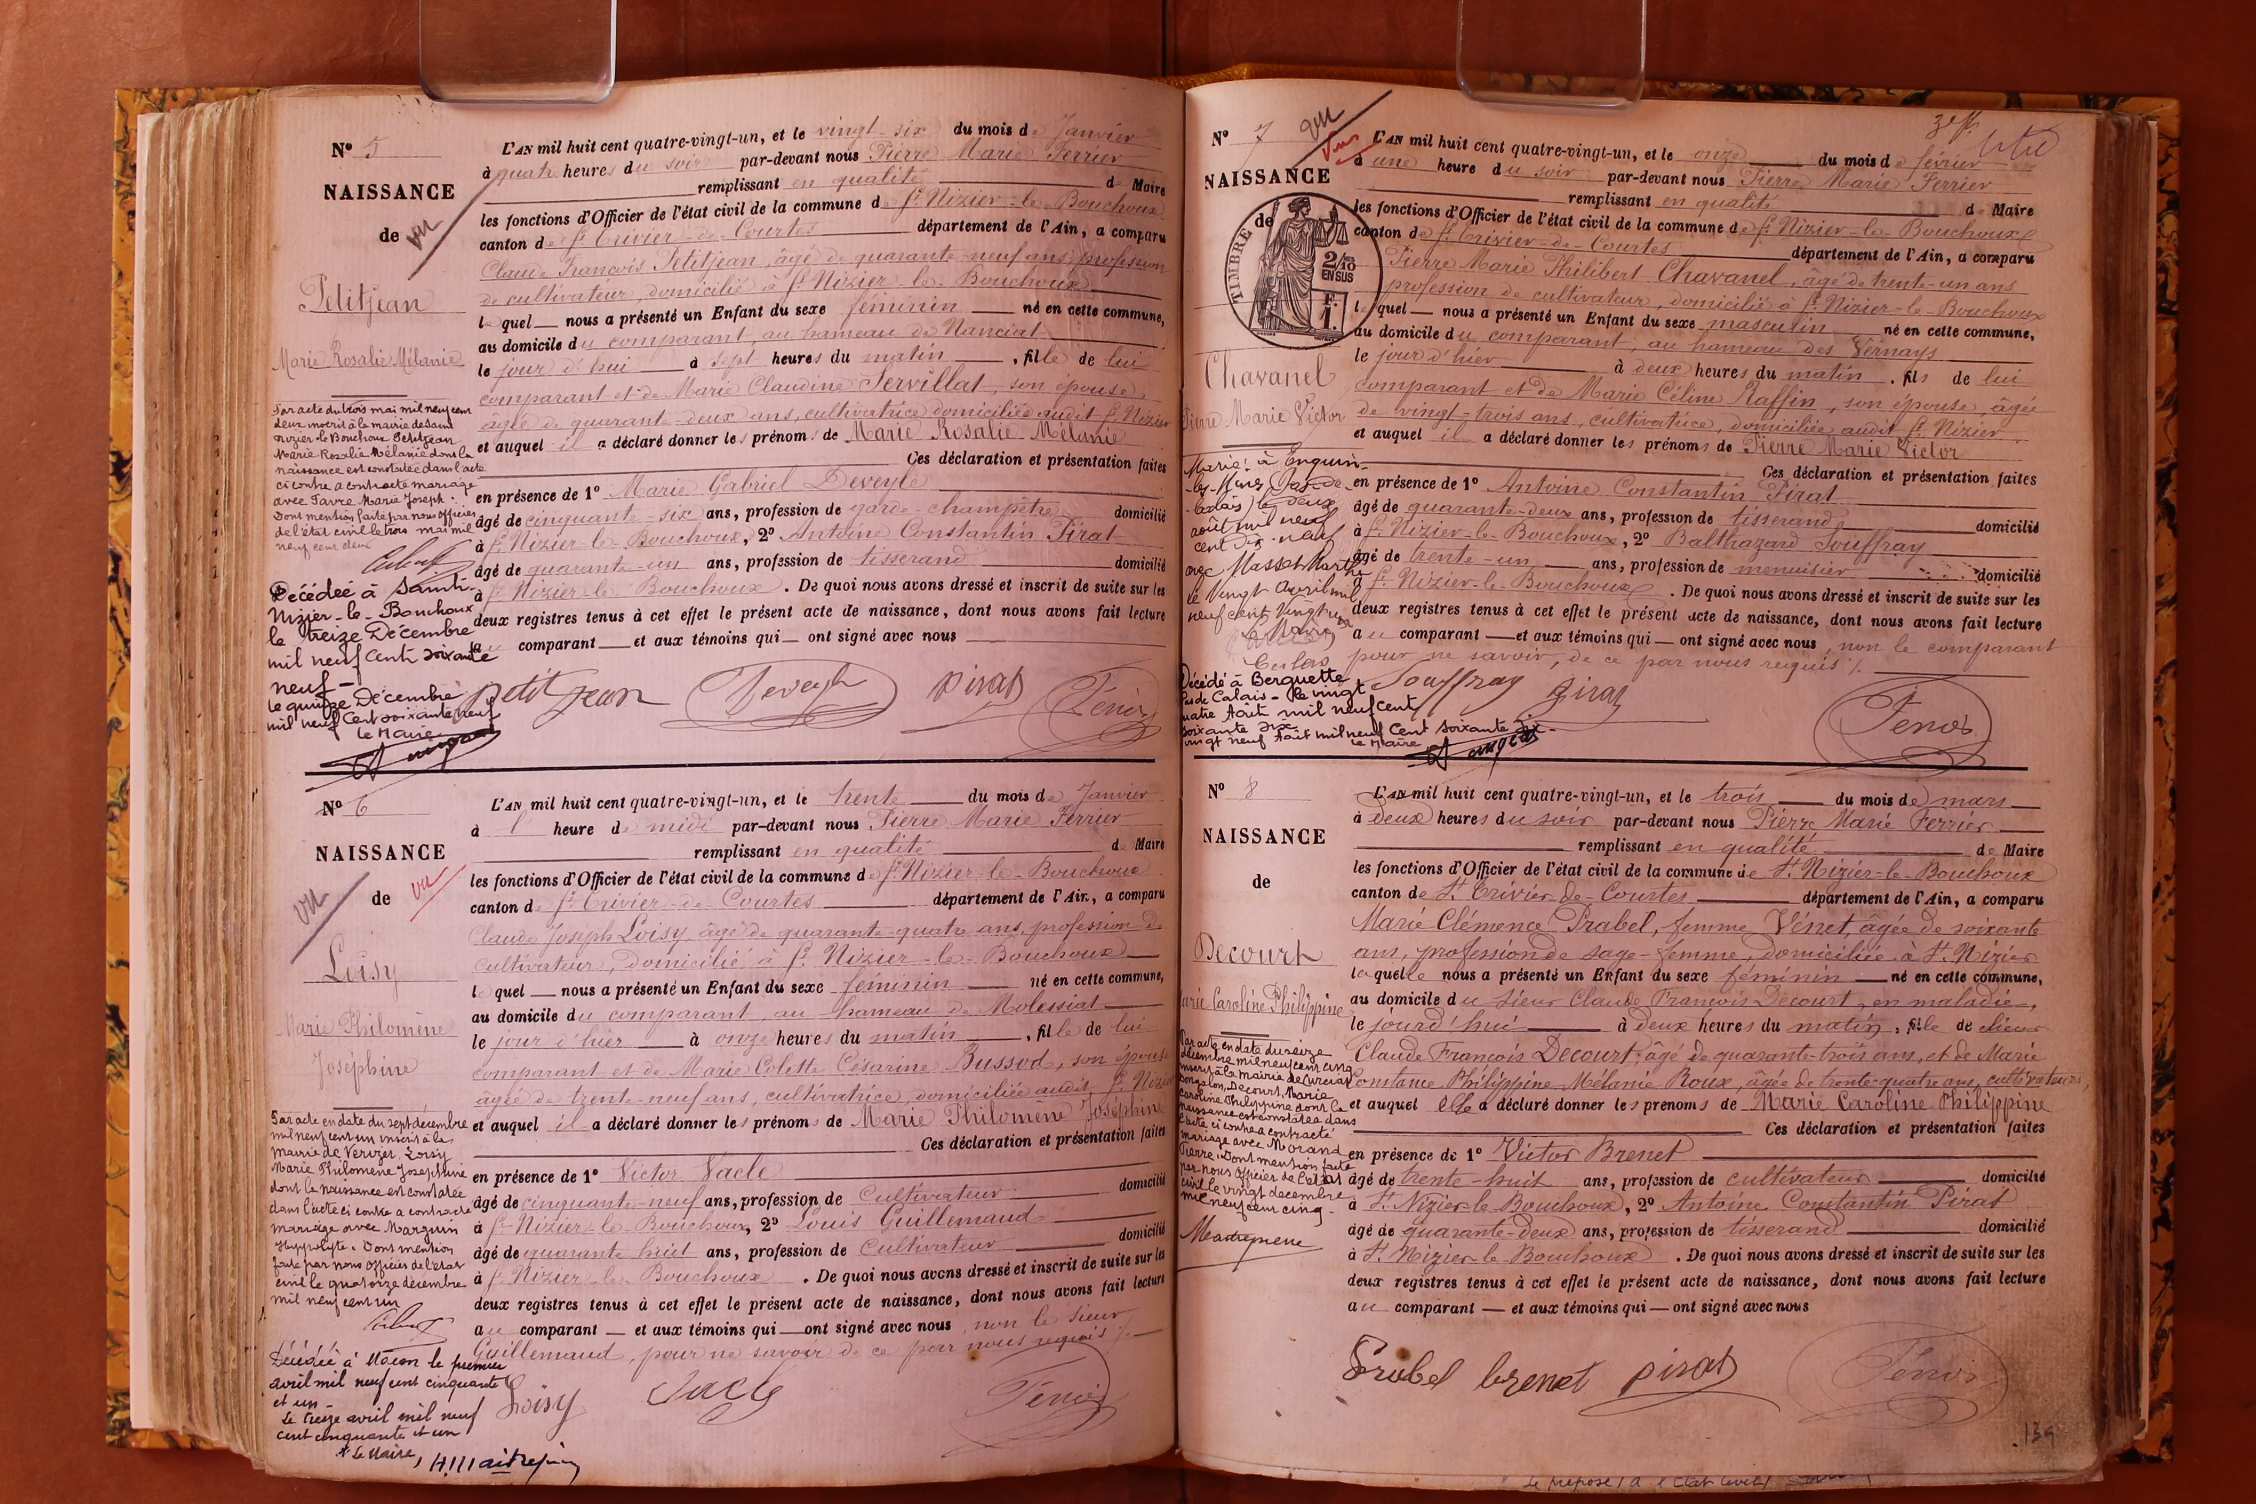 N° 5
NAISSANCE
de
vu
Petitjean
Marie Rosalie Mélanie
Par acte du trois mai mil neuf cent
deux inscrit à la mairie de Saint
Nizier-le-Bouchoux Petitjean
Marie Rosalie Mélanie dont la
naissance est constatée dans l'acte
ci contre a contracté mariage
avec Favre Marie Joseph.
Dont mention faite par nous officier
de l'état civil le trois mai mil
neuf cent deux
Décédée à Saint-
Nizier-le-Bouchoux
le treize Décembre
mil neuf cent soixante
neuf —
le quinze Décembre
mil neuf cent soixante neuf
le Maire
L'AN mil huit cent quatre-vingt-un, et le vingt-six du mois de Janvier
à quatre heures du soir par-devant nous Pierre Marie Ferrier
remplissant en qualité de Maire
les fonctions d'Officier de l'état civil de la commune de St Nizier-le-Bouchoux
canton de St Trivier-de-Courtes département de l'Ain, a comparu
Claude François Petitjean, âgé de quarante-neuf ans, profession
de cultivateur, domicilié à St Nizier-le-Bouchoux
lequel nous a présenté un Enfant du sexe féminin né en cette commune,
au domicile du comparant, au hameau de Nanciat
le jour d'hui à sept heures du matin, fille de lui
comparant et de Marie Claudine Servillat, son épouse,
âgée de quarante-deux ans, cultivatrice domiciliée audit St Nizier
et auquel il a déclaré donner les prénoms de Marie Rosalie Mélanie
Ces déclaration et présentation faites
en présence de 1° Marie Gabriel Deveyle
âgé de cinquante-six ans, profession de garde-champêtre domicilié
à St Nizier-le-Bouchoux, 2° Antoine Constantin Pirat
âgé de quarante-un ans, profession de tisserand domicilié
à St Nizier-le-Bouchoux. De quoi nous avons dressé et inscrit de suite sur les
deux registres tenus à cet effet le présent acte de naissance, dont nous avons fait lecture
au comparant et aux témoins qui ont signé avec nous
petit jean Deveyle pirat
N° 6
NAISSANCE
de
vu
vu
Loisy
Marie Philomène
Joséphine
Par acte en date du sept décembre
mil neuf cent un inscrit à la
mairie de Verizet Loisy
Marie Philomène Joséphine
dont la naissance est constatée
dans l'acte ci contre a contracté
mariage avec Marguin
Hyppolyte. Dont mention
faite par nous officier de l'état
civil le quatorze décembre
mil neuf cent un
Décédée à Mâcon le premier
avril mil neuf cent cinquante
et un —
Le treize avril mil neuf
cent cinquante et un
Le Maire,
L'AN mil huit cent quatre-vingt-un, et le trente du mois de Janvier
à 1 heure de midi par-devant nous Pierre Marie Ferrier
remplissant en qualité de Maire
les fonctions d'Officier de l'état civil de la commune de St Nizier-le-Bouchoux
canton de St Trivier-de-Courtes département de l'Ain, a comparu
Claude Joseph Loisy, âgé de quarante-quatre ans, profession de
cultivateur, domicilié à St Nizier-le-Bouchoux
lequel nous a présenté un Enfant du sexe féminin né en cette commune,
au domicile du comparant, au hameau de Molessiat
le jour d'hier à onze heures du matin, fille de lui
comparant et de Marie Colette Césarine Bussod, son épouse
âgée de trente-neuf ans, cultivatrice, domiciliée audit St Nizier
et auquel il a déclaré donner les prénoms de Marie Philomène Joséphine
Ces déclaration et présentation faites
en présence de 1° Victor Vacle
âgé de cinquante-neuf ans, profession de Cultivateur domicilié
à St Nizier-le-Bouchoux, 2° Louis Guillemaud
âgé de quarante-huit ans, profession de Cultivateur domicilié
à St Nizier-le-Bouchoux. De quoi nous avons dressé et inscrit de suite sur les
deux registres tenus à cet effet le présent acte de naissance, dont nous avons fait lecture
au comparant et aux témoins qui ont signé avec nous, non le sieur
Guillemaud, pour ne savoir de ce par nous requis /.
Loisy Vacle
N° 7
vu
NAISSANCE
de
TIMBRE
2/10 EN SUS
F. 1.
Chavanel
Pierre Marie Victor
Marié à Enquin-
les-Mines, Pas-de-
Calais, le deux
août mil neuf
cent dix-neuf
avec Massat Marthe
le vingt avril mil
neuf cent vingt un
Décédé à Berguette
Pas de Calais - le vingt
quatre Août mil neuf cent
soixante six
vingt neuf Août mil neuf cent soixante six
le Maire
L'AN mil huit cent quatre-vingt-un, et le onze du mois de février
à une heure du soir par-devant nous Pierre Marie Ferrier
remplissant en qualité de Maire
les fonctions d'Officier de l'état civil de la commune de St Nizier-le-Bouchoux
canton de St Trivier-de-Courtes département de l'Ain, a comparu
Pierre Marie Philibert Chavanel, âgé de trente-un ans
profession de cultivateur, domicilié à St Nizier-le-Bouchoux
lequel nous a présenté un Enfant du sexe masculin né en cette commune,
au domicile du comparant, au hameau des Vernays
le jour d'hier à deux heures du matin, fils de lui
comparant et de Marie Céline Raffin, son épouse, âgée
de vingt-trois ans, cultivatrice, domiciliée audit St Nizier
et auquel il a déclaré donner les prénoms de Pierre Marie Victor
Ces déclaration et présentation faites
en présence de 1° Antoine Constantin Pirat
âgé de quarante-deux ans, profession de tisserand domicilié
à St Nizier-le-Bouchoux, 2° Balthazard Souffray
âgé de trente-un ans, profession de menuisier domicilié
à St Nizier-le-Bouchoux. De quoi nous avons dressé et inscrit de suite sur les
deux registres tenus à cet effet le présent acte de naissance, dont nous avons fait lecture
au comparant et aux témoins qui ont signé avec nous, non le comparant
pour ne savoir, de ce par nous requis /.
Souffray Pirat
N° 8
NAISSANCE
de
Decourt
Marie Caroline Philippine
Par acte en date du seize
décembre mil neuf cent cinq
inscrit à la mairie de
Decourt Marie
Caroline Philippine dont la
naissance est constatée dans
l'acte ci contre a contracté
mariage avec Morand
Pierre. Dont mention faite
par nous Officier de l'état
civil le vingt décembre
mil neuf cent cinq.
L'AN mil huit cent quatre-vingt-un, et le trois du mois de mars
à deux heures du soir par-devant nous Pierre Marie Ferrier
remplissant en qualité de Maire
les fonctions d'Officier de l'état civil de la commune de St Nizier-le-Bouchoux
canton de St Trivier-de-Courtes département de l'Ain, a comparu
Marie Clémence Prabel, femme Vénet, âgée de soixante
ans, profession de sage-femme, domiciliée à St Nizier
laquelle nous a présenté un Enfant du sexe féminin né en cette commune,
au domicile du sieur Claude François Decourt, en maladie,
le jourd'hui à deux heures du matin, fille de sieur
Claude François Decourt, âgé de quarante-trois ans, et de Marie
Constance Philippine Mélanie Roux, âgée de trente-quatre ans, cultivateurs,
et auquel elle a déclaré donner les prénoms de Marie Caroline Philippine
Ces déclaration et présentation faites
en présence de 1° Victor Brenet
âgé de trente-huit ans, profession de cultivateur domicilié
à St Nizier-le-Bouchoux, 2° Antoine Constantin Pirat
âgé de quarante-deux ans, profession de tisserand domicilié
à St Nizier-le-Bouchoux. De quoi nous avons dressé et inscrit de suite sur les
deux registres tenus à cet effet le présent acte de naissance, dont nous avons fait lecture
au comparant — et aux témoins qui — ont signé avec nous
Prabel brenet pirat
139